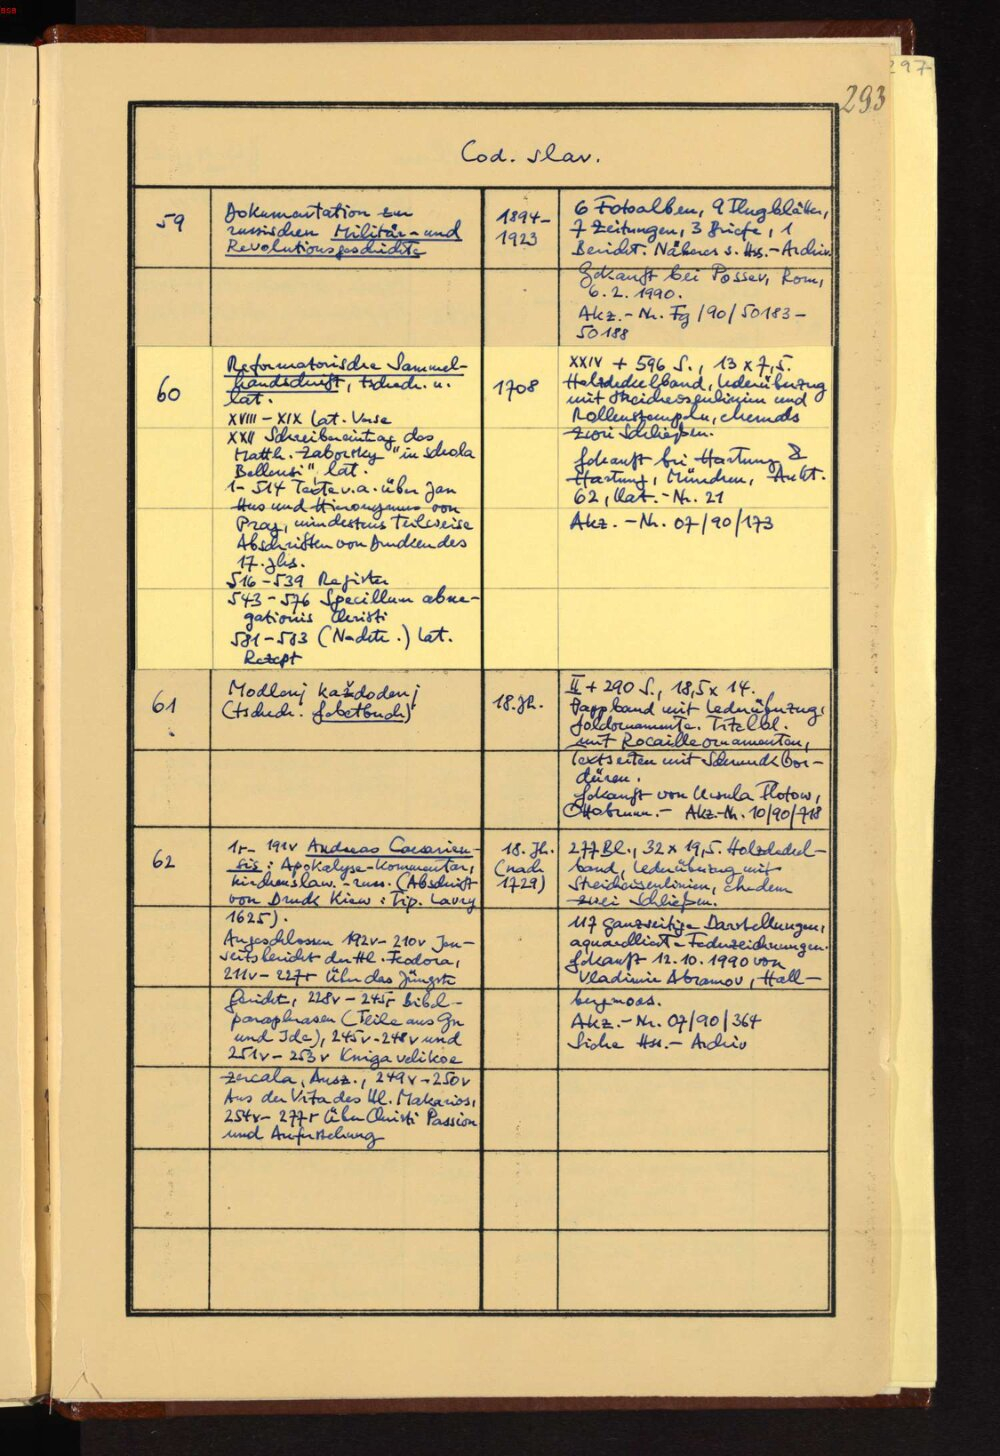 297
293
Cod. slav.
59
Dokumentation zur
russischen Militär- und
Revolutionsgeschichte
1894-
1923
6 Fotoalben, 9 Flugblätter,
7 Zeitungen, 3 Briefe, 1
Bericht. Näheres s. Hss.-Archiv
Gekauft bei Posser, Rom,
6. 2. 1990.
Akz.-Nr. Fg/90/50183-
50188
60
Reformatorische Sammel-
handschrift, tschech. u.
lat.
XVIII-XIX lat. Verse
XXII Schreibereintrag des
Matth. Zaborsky "in schola
Bellensi", lat.
1-514 Texte v.a. über Jan
Hus und Hieronymus von
Prag, mindestens teilweise
Abschriften von Drucken des
17. Jhs.
516-539 Register
543-576 Specillum abne-
gationis Christi
581-583 (Nachtr.) lat.
Rezept
1708
XXIV + 596 S., 13 x 7,5.
Holzdeckelband, Lederüberzug
mit Streicheisenlinien und
Rollenstempeln, ehemals
zwei Schließen.
Gekauft bei Hartung &
Hartung, München, Aukt.
62, Kat.-Nr. 21
Akz.-Nr. 07/90/173
61
Modlenj každodenj
(tschech. Gebetbuch)
18. Jh.
II + 290 S., 18,5 x 14.
Pappband mit Lederüberzug,
Goldornamente. Titelbl.
mit Rocailleornamenten,
Textseiten mit Schmuckbor-
düren.
Gekauft von Ursula Flotow,
Ottobrunn.- Akz.-Nr. 10/90/718
62
1r-191v Andreas Caesarien-
sis: Apokalypse-Kommentar,
kirchenslaw.-russ. (Abschrift
von Druck Kiew: Tip. Lavry
1625).
Angeschlossen 192v-210v Jen-
seitsbericht der Hl. Feodora,
211v-227r Über das Jüngste
Gericht, 228v-245r Bibel-
paraphrasen (Teile aus Gn
und Jdc), 245v-248v und
251v-253v Kniga velikoe
zercala, Ausz., 249v-250v
Aus der Vita des Hl. Makarios,
254v-277r Über Christi Passion
und Auferstehung
18. Jh.
(nach
1729)
277 Bl., 32 x 19,5. Holzdeckel-
band, Lederüberzug mit
Streicheisenlinien, ehedem
zwei Schließen.
117 ganzseitige Darstellungen,
aquarellierte Federzeichnungen.
Gekauft 12.10.1990 von
Vladimir Abramov, Hall-
bergmoos.
Akz.-Nr. 07/90/364
Siehe Hss.-Archiv